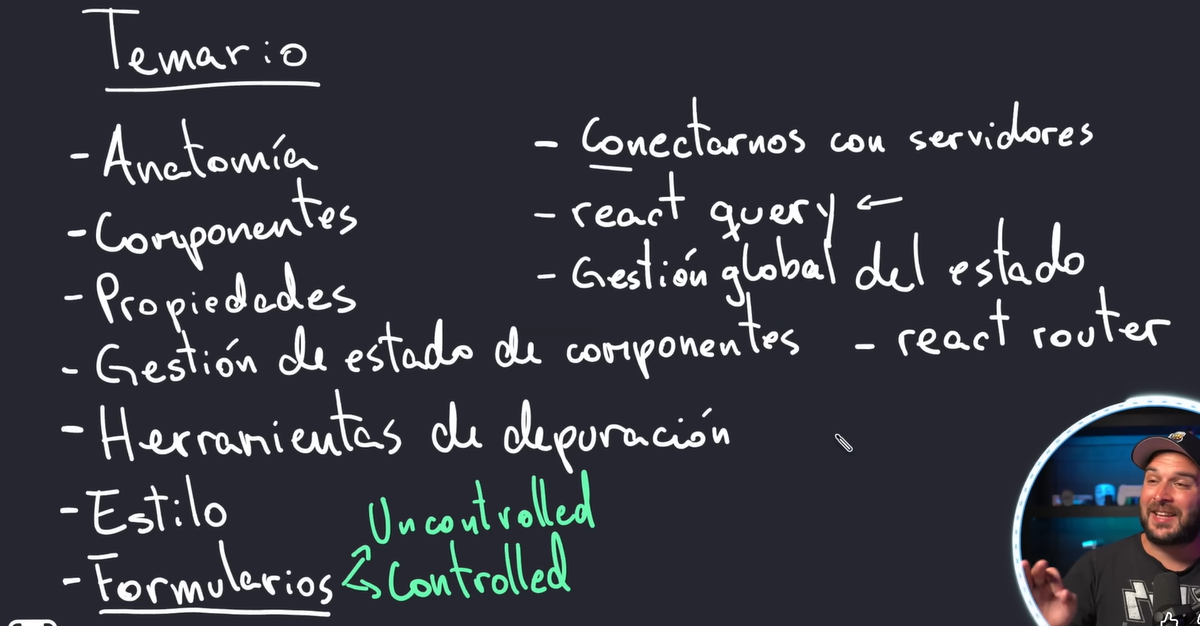 Temario
- Anatomía
- Componentes
- Propiedades
- Gestión de estado de componentes
- Herramientas de depuración
- Estilo
- Formularios
Uncontrolled
Controlled
- Conectarnos con servidores
- react query ←
- Gestión global del estado
- react router